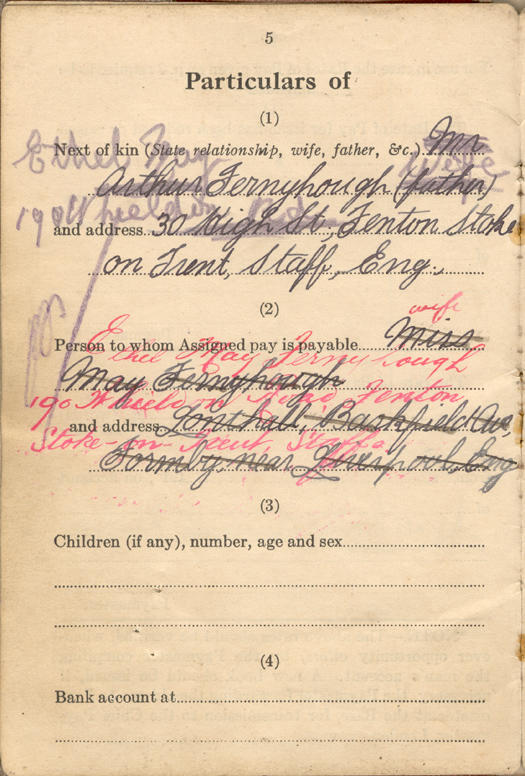 5
Particulars of
(1)
Ethel May
Next of kin (State relationship, wife, father, &c.) Mr.
Arthur Fernyhough (father)
190 Wheeldon Rd.
and address 30 High St., Fenton Stoke
on Trent, Staff, Eng.
(2)
wife
Person to whom Assigned pay is payable Miss
Ethel May Fernyhough
May Fernyhough
190 Wheeldon Road, Fenton
and address
Stoke-on-Trent Staffs
Formby, near Liverpool, Eng
(3)
Children (if any), number, age and sex
(4)
Bank account at